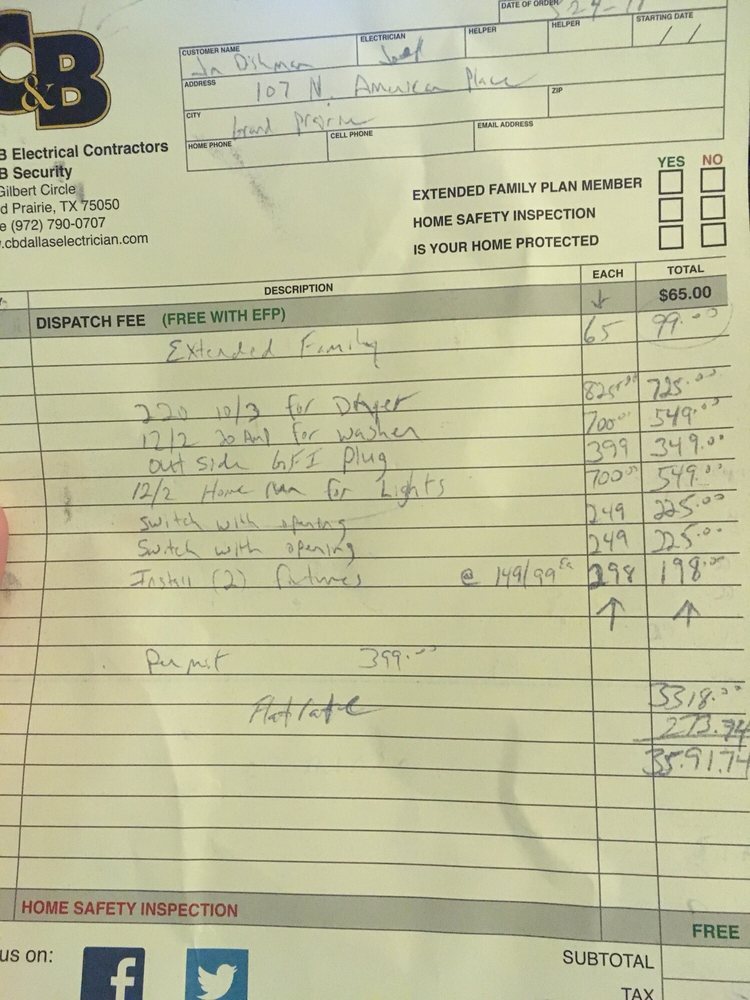 DATE OF ORDER
CUSTOMER NAME ELECTRICIAN HELPER HELPER STARTING DATE
Jn Dishman / /
ADDRESS
107 N. American Place
CITY ZIP
Grand Prairie
HOME PHONE CELL PHONE EMAIL ADDRESS
&B
B Electrical Contractors
B Security
Gilbert Circle
d Prairie, TX 75050
e (972) 790-0707
.cbdallaselectrician.com
YES NO
EXTENDED FAMILY PLAN MEMBER
HOME SAFETY INSPECTION
IS YOUR HOME PROTECTED
DESCRIPTION EACH TOTAL
DISPATCH FEE (FREE WITH EFP) ↓ $65.00
Extended Family 65 99.00
220 10/3 for Dryer 825.00 725.00
12/2 20 Amp for washer 700.00 549.00
out side GFI Plug 399 349.00
12/2 Home run for Lights 700.00 549.00
switch with opening 249 225.00
Switch with opening 249 225.00
Install (2) fixtures @ 149/99 Ea 298 198.00
↑ ↑
Permit 399.00
Flat rate 3318.00
273.74
3591.74
HOME SAFETY INSPECTION FREE
us on: f
SUBTOTAL
TAX